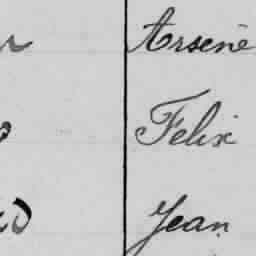 Arsène
Felix
Jean